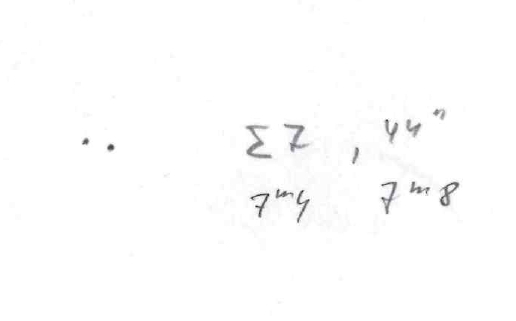 Σ7, 44"
7ᵐ4 7ᵐ8